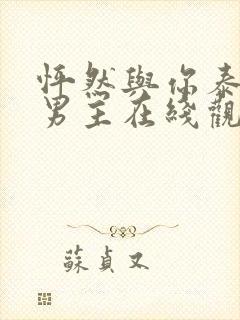 怦然與你泰
男主在綫觀
蘇貞又